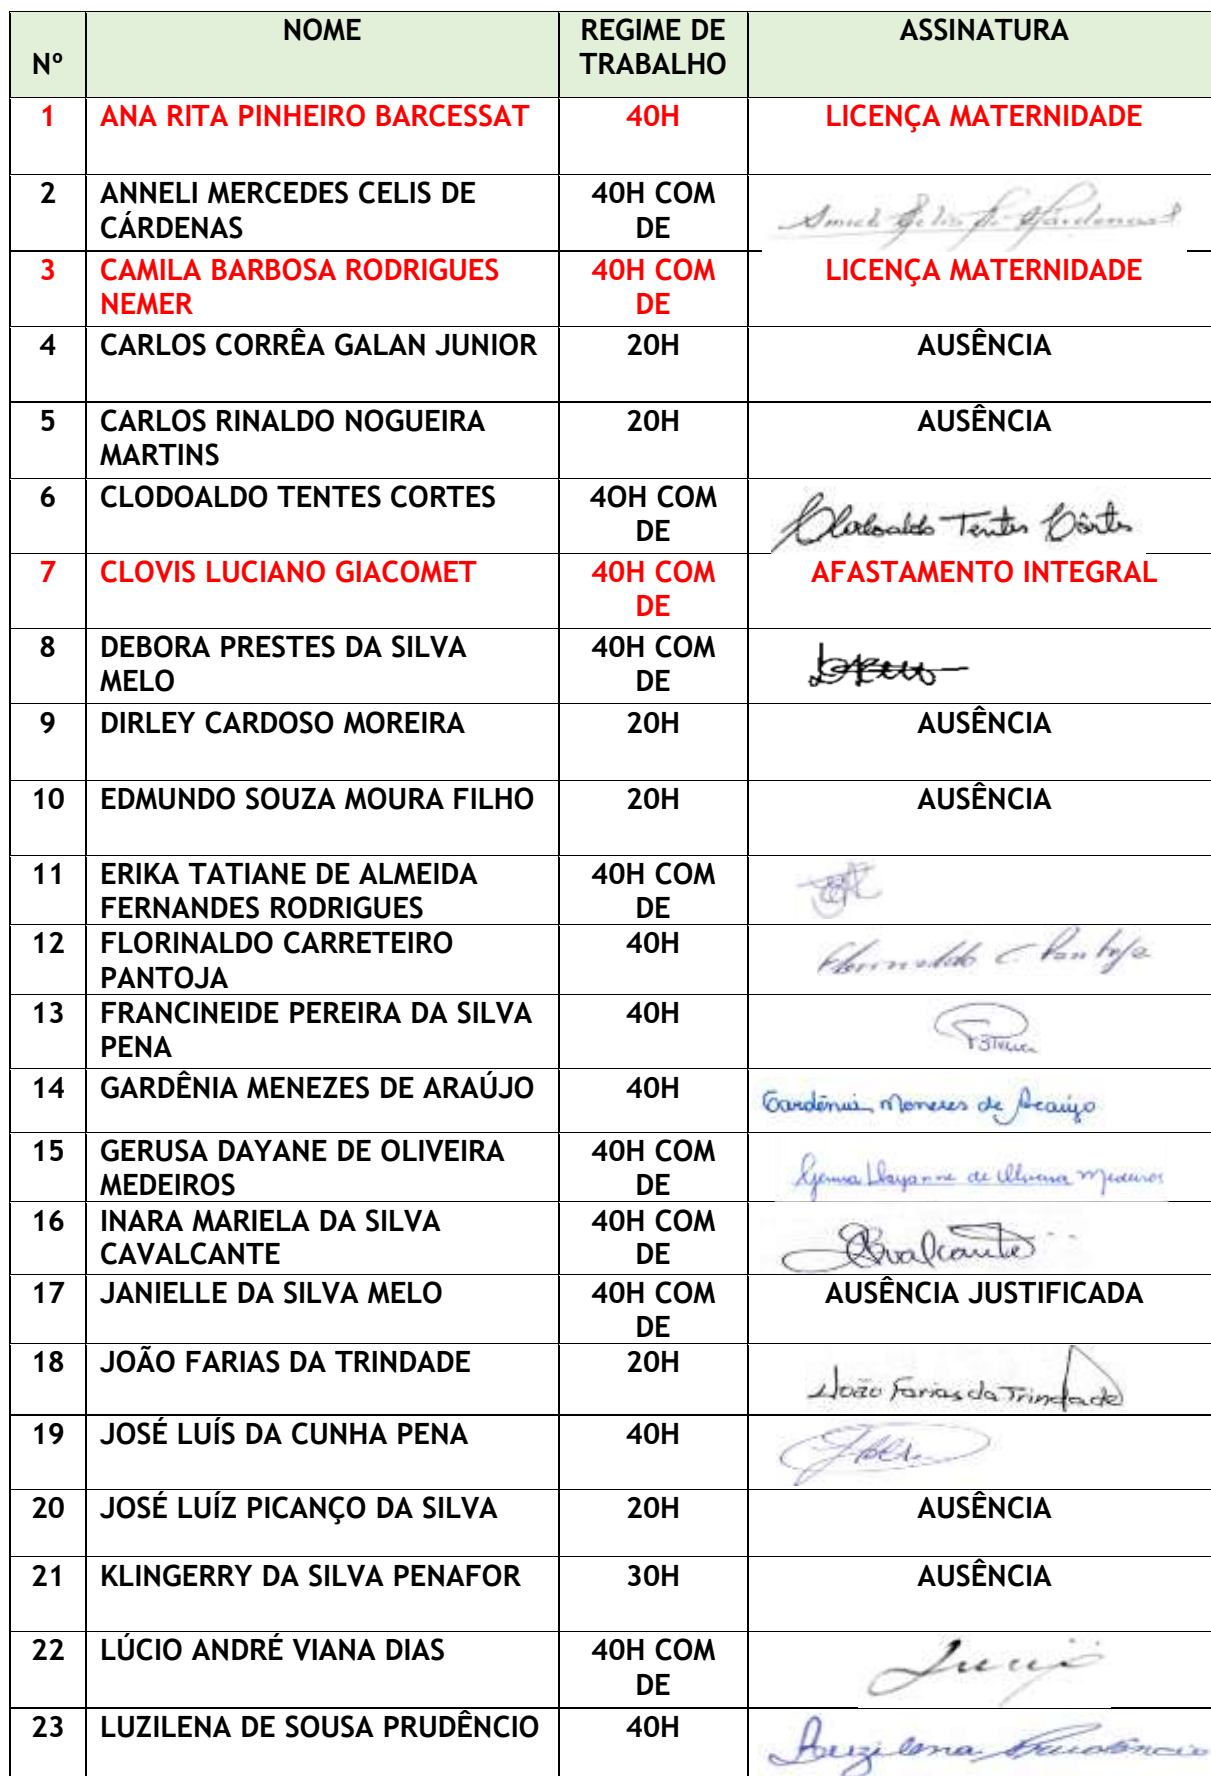 Nº NOME REGIME DE TRABALHO ASSINATURA
1 ANA RITA PINHEIRO BARCESSAT 40H LICENÇA MATERNIDADE
2 ANNELI MERCEDES CELIS DE 40H COM
CÁRDENAS DE
3 CAMILA BARBOSA RODRIGUES 40H COM LICENÇA MATERNIDADE
NEMER DE
4 CARLOS CORRÊA GALAN JUNIOR 20H AUSÊNCIA
5 CARLOS RINALDO NOGUEIRA 20H AUSÊNCIA
MARTINS
6 CLODOALDO TENTES CORTES 4OH COM Clodoaldo Tentes Côrtes
DE
7 CLOVIS LUCIANO GIACOMET 40H COM AFASTAMENTO INTEGRAL
DE
8 DEBORA PRESTES DA SILVA 40H COM
MELO DE
9 DIRLEY CARDOSO MOREIRA 20H AUSÊNCIA
10 EDMUNDO SOUZA MOURA FILHO 20H AUSÊNCIA
11 ERIKA TATIANE DE ALMEIDA 40H COM
FERNANDES RODRIGUES DE
12 FLORINALDO CARRETEIRO 40H Florinaldo C Pantoja
PANTOJA
13 FRANCINEIDE PEREIRA DA SILVA 40H
PENA
14 GARDÊNIA MENEZES DE ARAÚJO 40H Gardênia Menezes de Araújo
15 GERUSA DAYANE DE OLIVEIRA 40H COM Gerusa Dayanne de Oliveira Medeiros
MEDEIROS DE
16 INARA MARIELA DA SILVA 40H COM Cavalcante
CAVALCANTE DE
17 JANIELLE DA SILVA MELO 40H COM AUSÊNCIA JUSTIFICADA
DE
18 JOÃO FARIAS DA TRINDADE 20H João Farias da Trindade
19 JOSÉ LUÍS DA CUNHA PENA 40H
20 JOSÉ LUÍZ PICANÇO DA SILVA 20H AUSÊNCIA
21 KLINGERRY DA SILVA PENAFOR 30H AUSÊNCIA
22 LÚCIO ANDRÉ VIANA DIAS 40H COM
DE
23 LUZILENA DE SOUSA PRUDÊNCIO 40H Luzilena Prudêncio